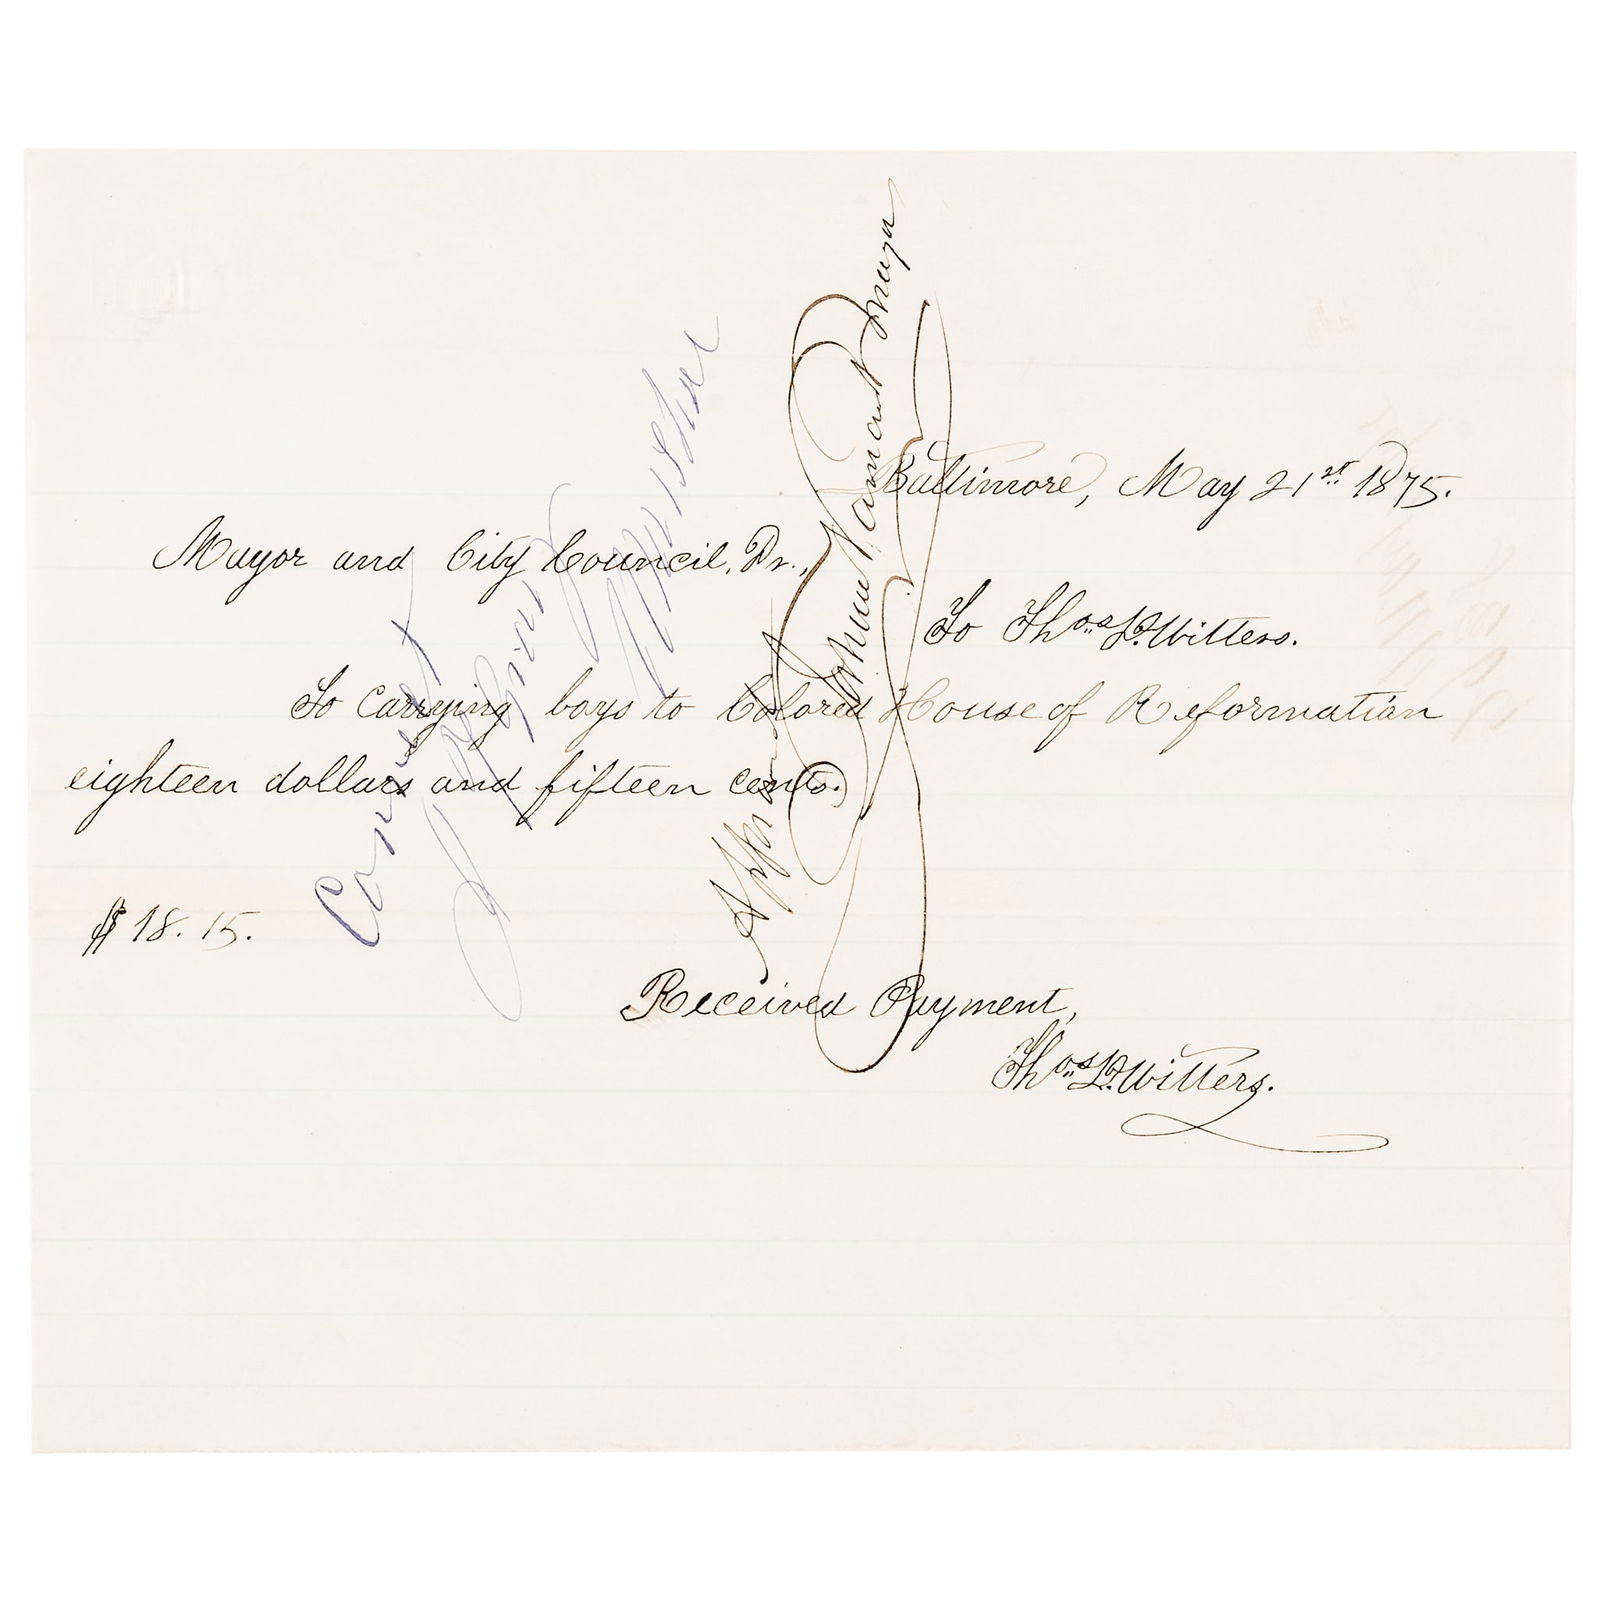 Baltimore, May 21st 1875.
Mayor and City Council, Dr.,
To Thos. L. Witters.
To carrying boys to Colored House of Reformation
eighteen dollars and fifteen cents.
$18.15.
Received Payment,
Thos. L. Witters.
Correct
Approved
Joshua Vansant Mayor